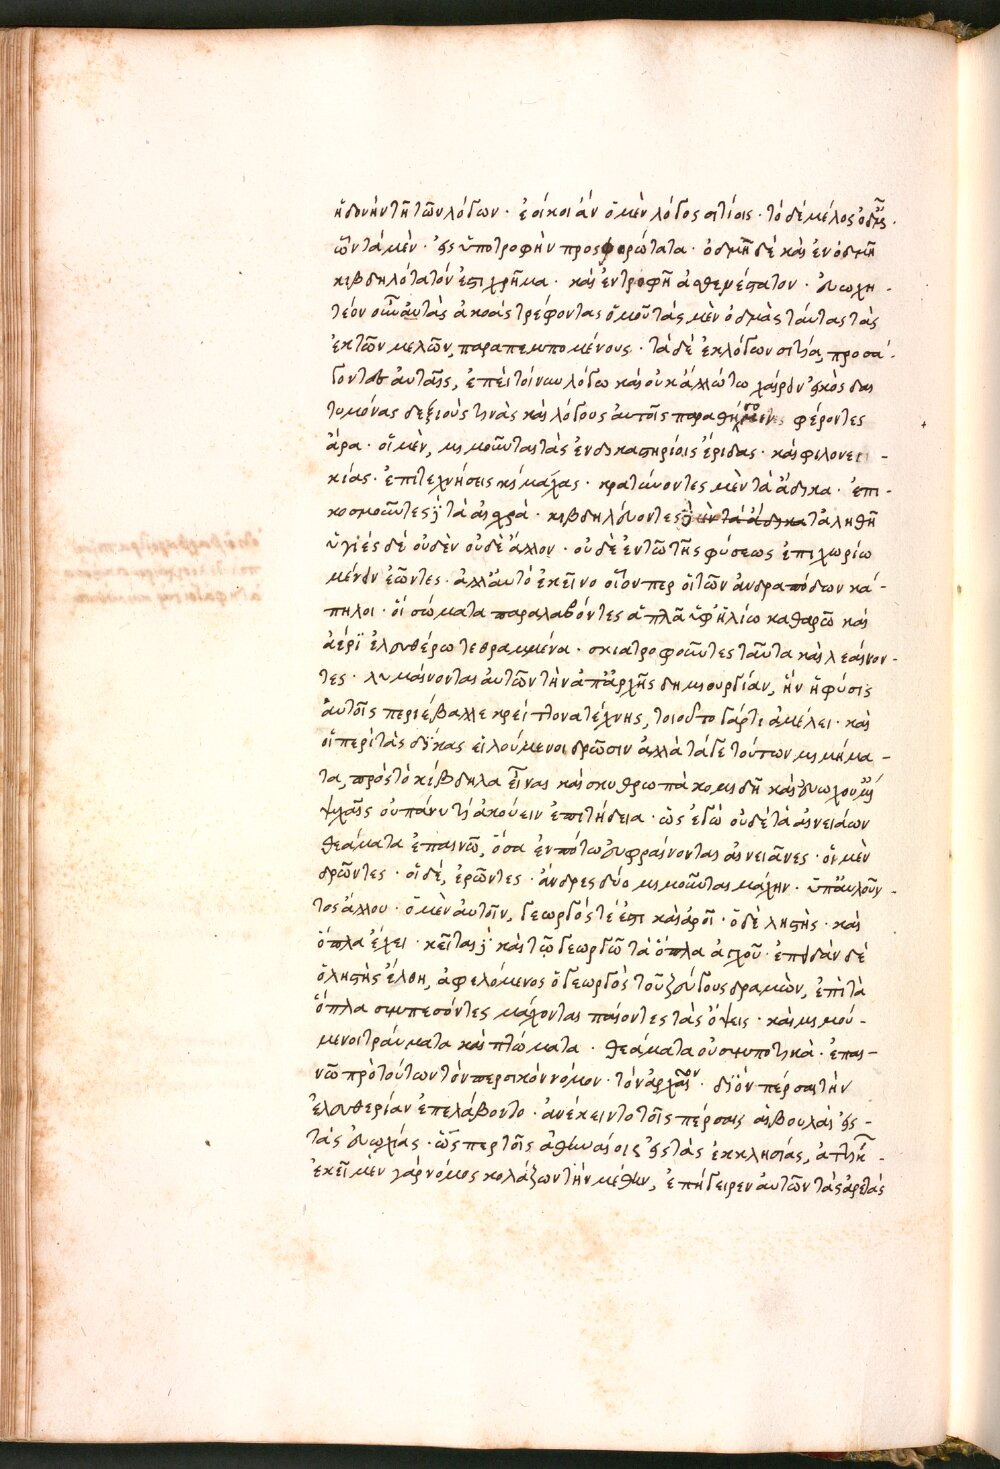 ἡδονὴν τῇ τῶν λόγων · ἐοίκοι ἂν ὁ μὲν λόγος σιτίοις · τὸ δὲ μέλος ὀδμαῖς ·
ὧν τὰ μὲν · ἐς ὑποτροφὴν προσφορώτατα · ὀδμὴ δὲ καὶ ἐν ὀδμῇ
κιβδηλότατον ἐπιχρῆμα · καὶ ἐν τροφῇ ἀσθενέστατον · εὐωχη -
τέον οὖν αὐτὰς ἀκοὰς τρέφοντας ὁμοῦ τὰς μὲν ὀδμὰς ταύτας τὰς
ἐκ τῶν μελῶν, παραπεμπομένους · τὰ δὲ ἐκ λόγων σιτία, προσά -
γοντας αὐταῖς, ἐπεὶ τοίνυν λόγῳ καὶ οὐκ ἄλλῳ τῳ χαίρειν εἰκὸς δαι
τυμόνας δεξιοὺς τινὰς καὶ λόγους αὐτοῖς φέροντες
ἄρα · οἱ μὲν, μιμοῦνται τὰς ἐν δικαστηρίοις ἔριδας · καὶ φιλονει -
κίας · ἐπιτεχνήσεις καὶ μάχας · κρατύνοντες μὲν τὰ ἄδικα · ἐπι -
κοσμοῦντες δὲ τὰ αἰσχρὰ · κιβδηλεύοντες δὲ μὲν τὰ ἄδικα τἀληθῆ
ὑγιὲς δὲ οὐδὲν οὐδὲ ἄλλον · οὐδὲ ἐν τῷ τῆς φύσεως ἐπιχωρίῳ
μένειν ἐῶντες · ἀλλ' αὐτὸ ἐκεῖνο οἷον περ οἱ τῶν ἀνδραπόδων κά -
πηλοι · οἳ σώματα παραλαβόντες ἁπλᾶ ὑφ' ἡλίῳ καθαρῷ καὶ
ἀέρι ἐλευθέρῳ τεθραμμένα · σκιατροφοῦντες ταῦτα καὶ λεαίνον -
τες · λυμαίνονται αὐτῶν τὴν ἀπ' ἀρχῆς δημιουργίαν, ἣν ἡ φύσις
αὐτοῖς περιέβαλλε κρείττονα τέχνης, τοιοῦτο γάρ τι ἀμέλει · καὶ
οἱ περὶ τὰς δίκας εἰλούμενοι δρῶσιν ἀλλὰ τά γε τούτων μιμήμα -
τα, πρὸς τὸ κίβδηλα εἶναι καὶ σκυθρωπὰ κομιδῇ καὶ εὐωχουμέναις
ψυχαῖς οὐ πάνυ τι ἀκούειν ἐπιτήδεια · ὡς ἐγὼ οὐδὲ τὰ αἰνειάων
θεάματα ἐπαινῶ, ὅσα ἐν πότῳ εὐφραίνονται αἰνειᾶνες · οἱ μὲν
δρῶντες · οἱ δὲ, ἐρῶντες · ἄνδρες δύο μιμοῦνται μάχην · ὑπαυλοῦν -
τος ἄλλου · ὁ μὲν αὐτοῖν, γεωργός τέ ἐστι καὶ ἀροῖ · ὁ δὲ λῃστὴς · καὶ
ὅπλα ἔχει · κεῖται δὲ καὶ τῷ γεωργῷ τὰ ὅπλα ἀγχοῦ · ἐπειδὰν δὲ
ὁ λῃστὴς ἔλθῃ, ἀφελόμενος ὁ γεωργὸς τοῦ ζεύγους δραμὼν, ἐπὶ τὰ
ὅπλα συμπεσόντες μάχονται παίοντες τὰς ὄψεις · καὶ μιμού -
μενοι τραύματα καὶ πτώματα · θεάματα οὐ συμποτικὰ · ἐπαι -
νῶ πρὸ τούτων τὸν περσικὸν νόμον · τὸν ἀρχαῖον · δι' ὃν πέρσαι τὴν
ἐλευθερίαν ἐπελάβοντο · ἀνέκειντο τοῖς πέρσαις αἱ βουλαὶ ἐς -
τὰς εὐωχίας · ὥσπερ τοῖς ἀθηναίοις ἐς τὰς ἐκκλησίας, ἀττικ -
ἐκεῖ μὲν γὰρ νόμος κολάζων τὴν μέθην, ἐπήγειρεν αὐτῶν τὰς ἀρετὰς